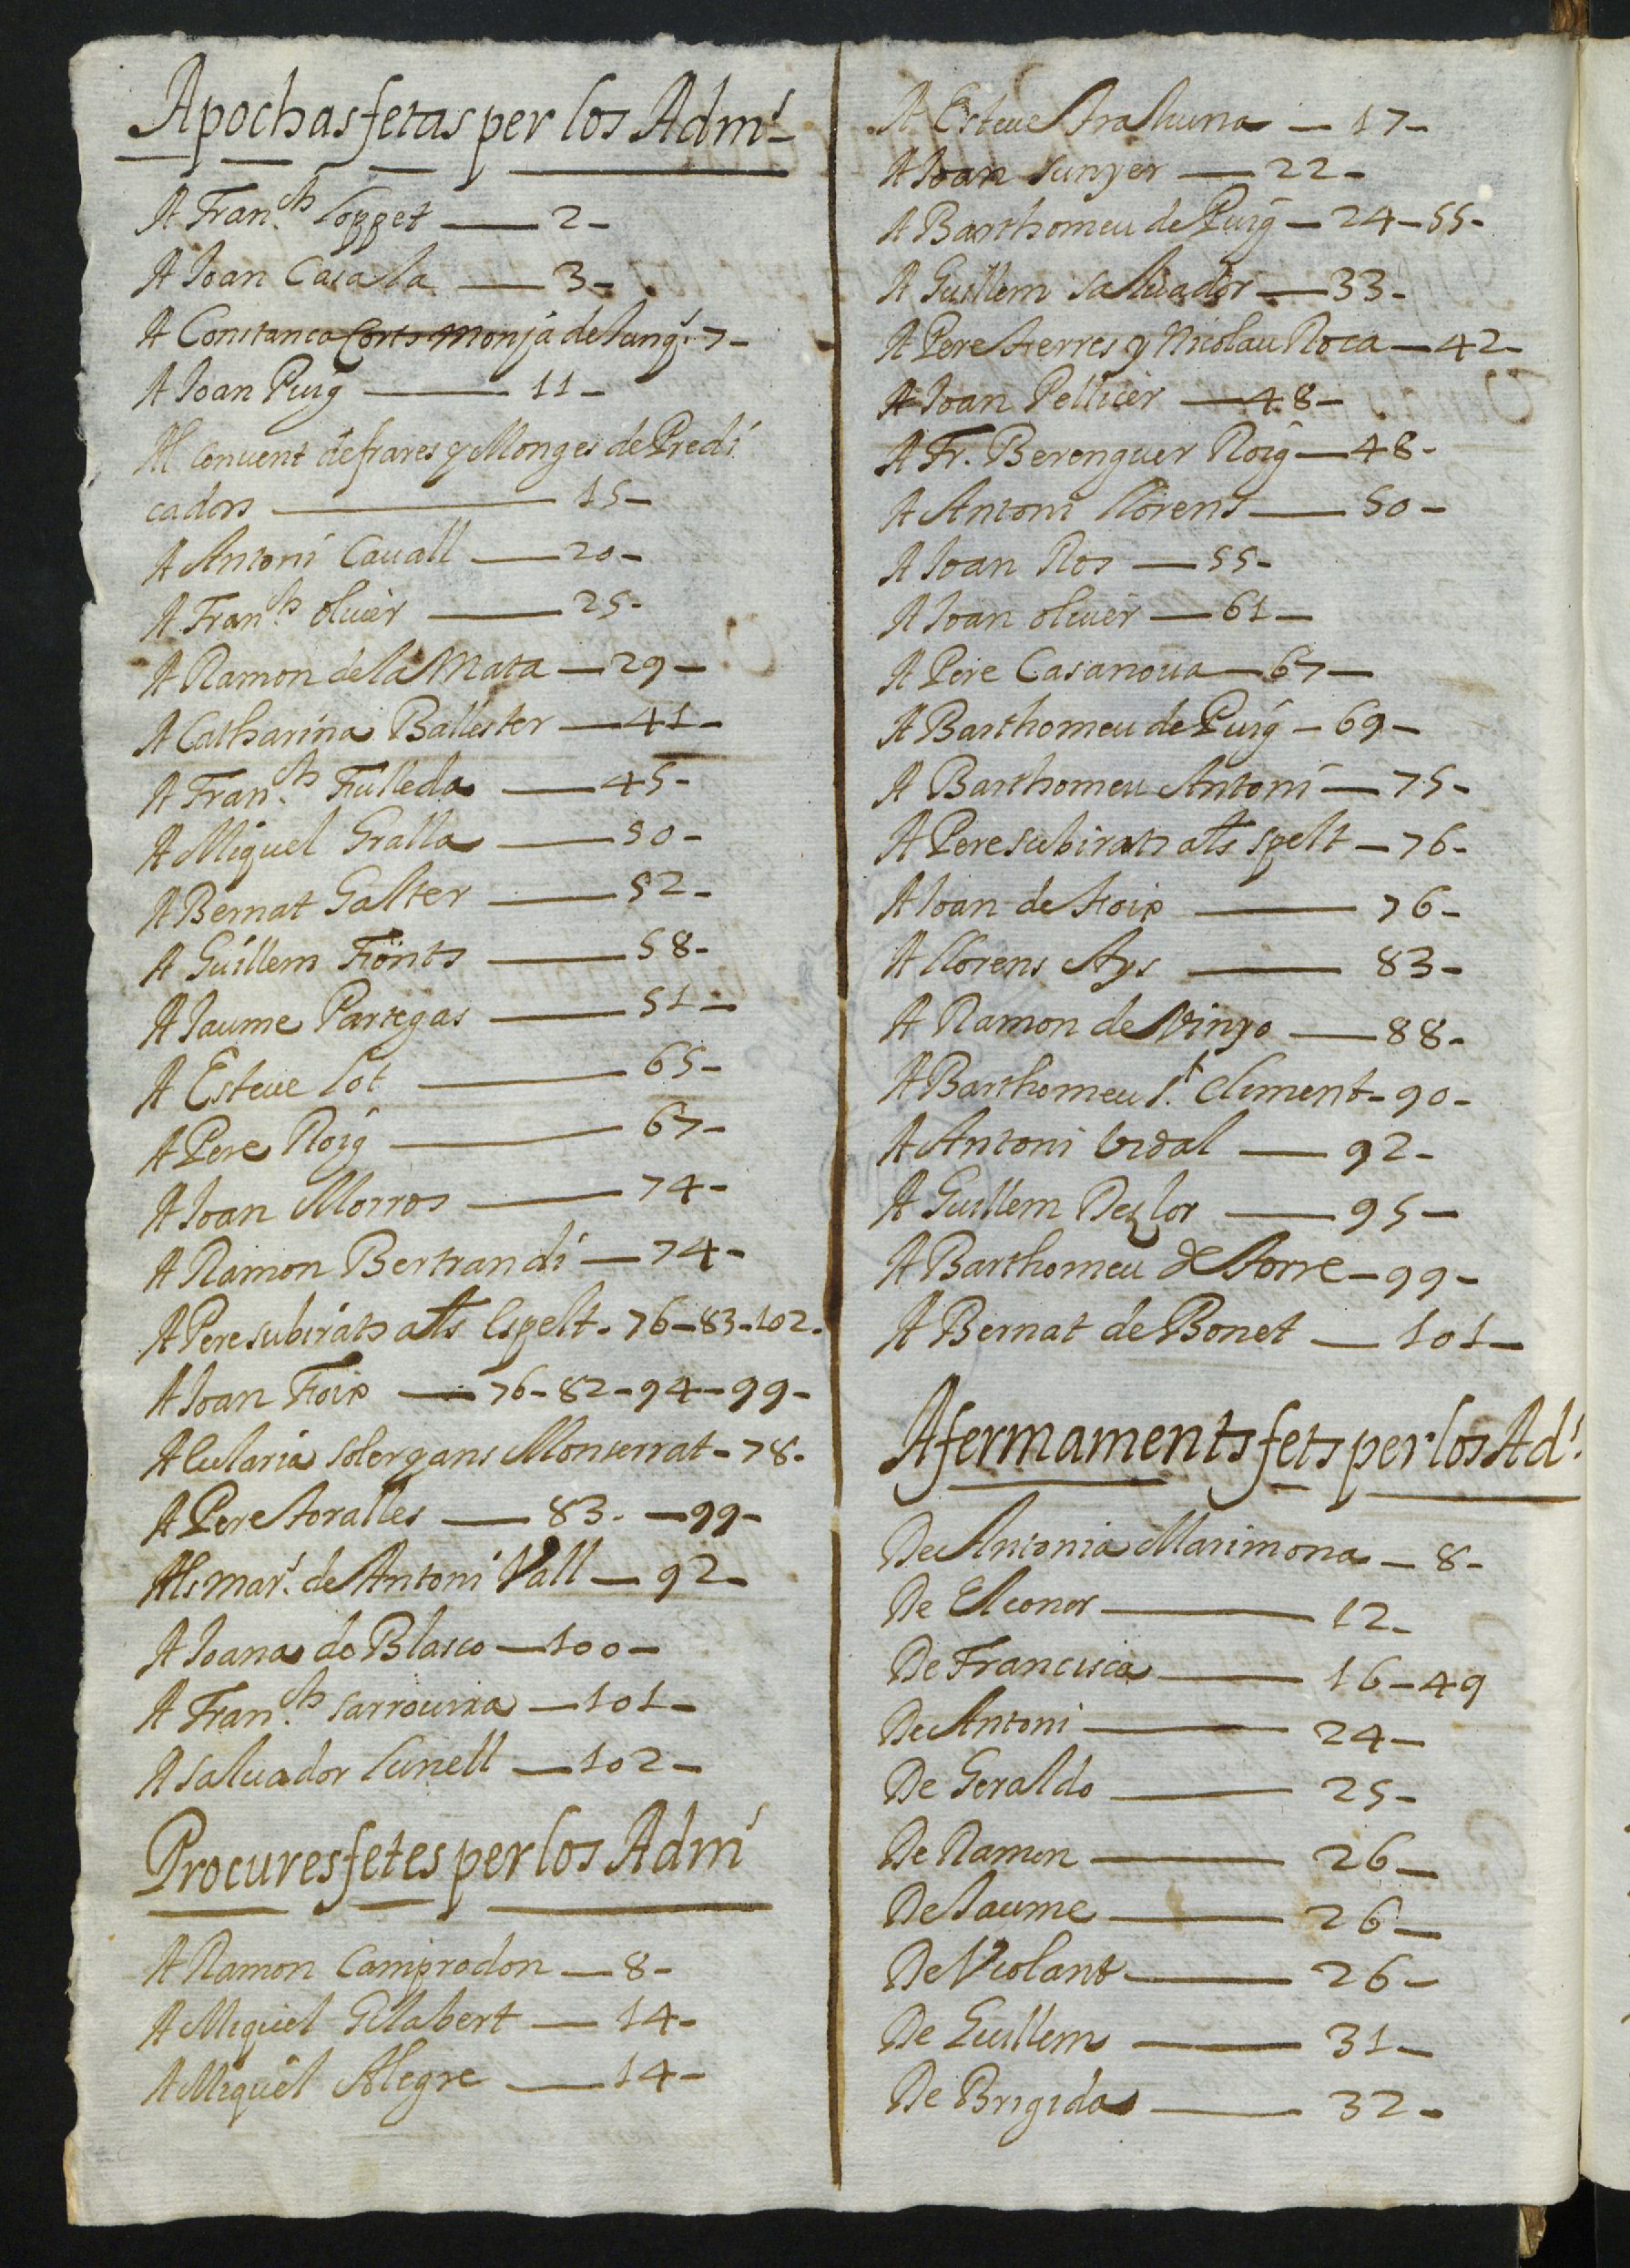 Apochas fetas per los Adm.^s
A Fran.^ch Loppet — 2 -
A Joan Casala — 3 -
A Constanca Corts Monja de Jung.^s 7 -
A Joan Puig — 11 -
Al Convent de frares y Monges de Predi
cadors — 15 -
A Antoni Cavall — 20 -
A Fran.^ch Oliver — 25 -
A Ramon de la Mata — 29 -
A Catharina Ballester — 41 -
A Fran.^ch Fulleda — 45 -
A Miquel Gralla — 50 -
A Bernat Galter — 52 -
A Guillem Fonts — 58 -
A Jaume Partegas — 51 -
A Esteve Lot — 65 -
A Pere Roig — 67 -
A Joan Morros — 74 -
A Ramon Bertrandi — 74 -
A Pere Subirats als Espelt - 76 - 83 - 102 -
A Joan Foix — 76 - 82 - 94 - 99 -
A Eularia Solergans Monserrat - 78 -
A Pere Toralles — 83 - — 99 -
Als mar.^s de Antoni Vall — 92 -
A Joana de Blasco — 100 -
A Fran.^ch Sarrovira — 101 -
A Salvador Cunell — 102 -
Procures fetes per los Adm.^s
A Ramon Camprodon — 8 -
A Miquel Gilabert — 14 -
A Miquel Alegre — 14 -
A Esteve Trahuna — 17 -
A Joan Sunyer — 22 -
A Barthomeu de Puig — 24 - 55 -
A Guillem Salvador — 33 -
A Pere Ferres y Nicolau Roca — 42 -
A Joan Pellicer — 48 -
A Fr. Berenguer Roig — 48 -
A Antoni Llorens — 50 -
A Joan Ros — 55 -
A Joan Oliver — 61 -
A Pere Casanova — 67 -
A Barthomeu de Puig — 69 -
A Barthomeu Antoni — 75 -
A Pere Subirats als Spelt — 76 -
A Joan de Foix — 76 -
A Llorens Ays — 83 -
A Ramon de Vinyo — 88 -
A Barthomeu S.^t Climent - 90 -
A Antoni Vidal — 92 -
A Guillem Dezlor — 95 -
A Barthomeu de Torre - 99 -
A Bernat de Bonet — 101 -
Afermaments fets per los Ad.^s
De Antonia Marimona — 8 -
De Elconor — 12 -
De Francisca — 16 - 49
De Antoni — 24 -
De Geraldo — 25 -
De Ramon — 26 -
De Jaume — 26 -
De Violant — 26 -
De Guillem — 31 -
De Brigida — 32 -